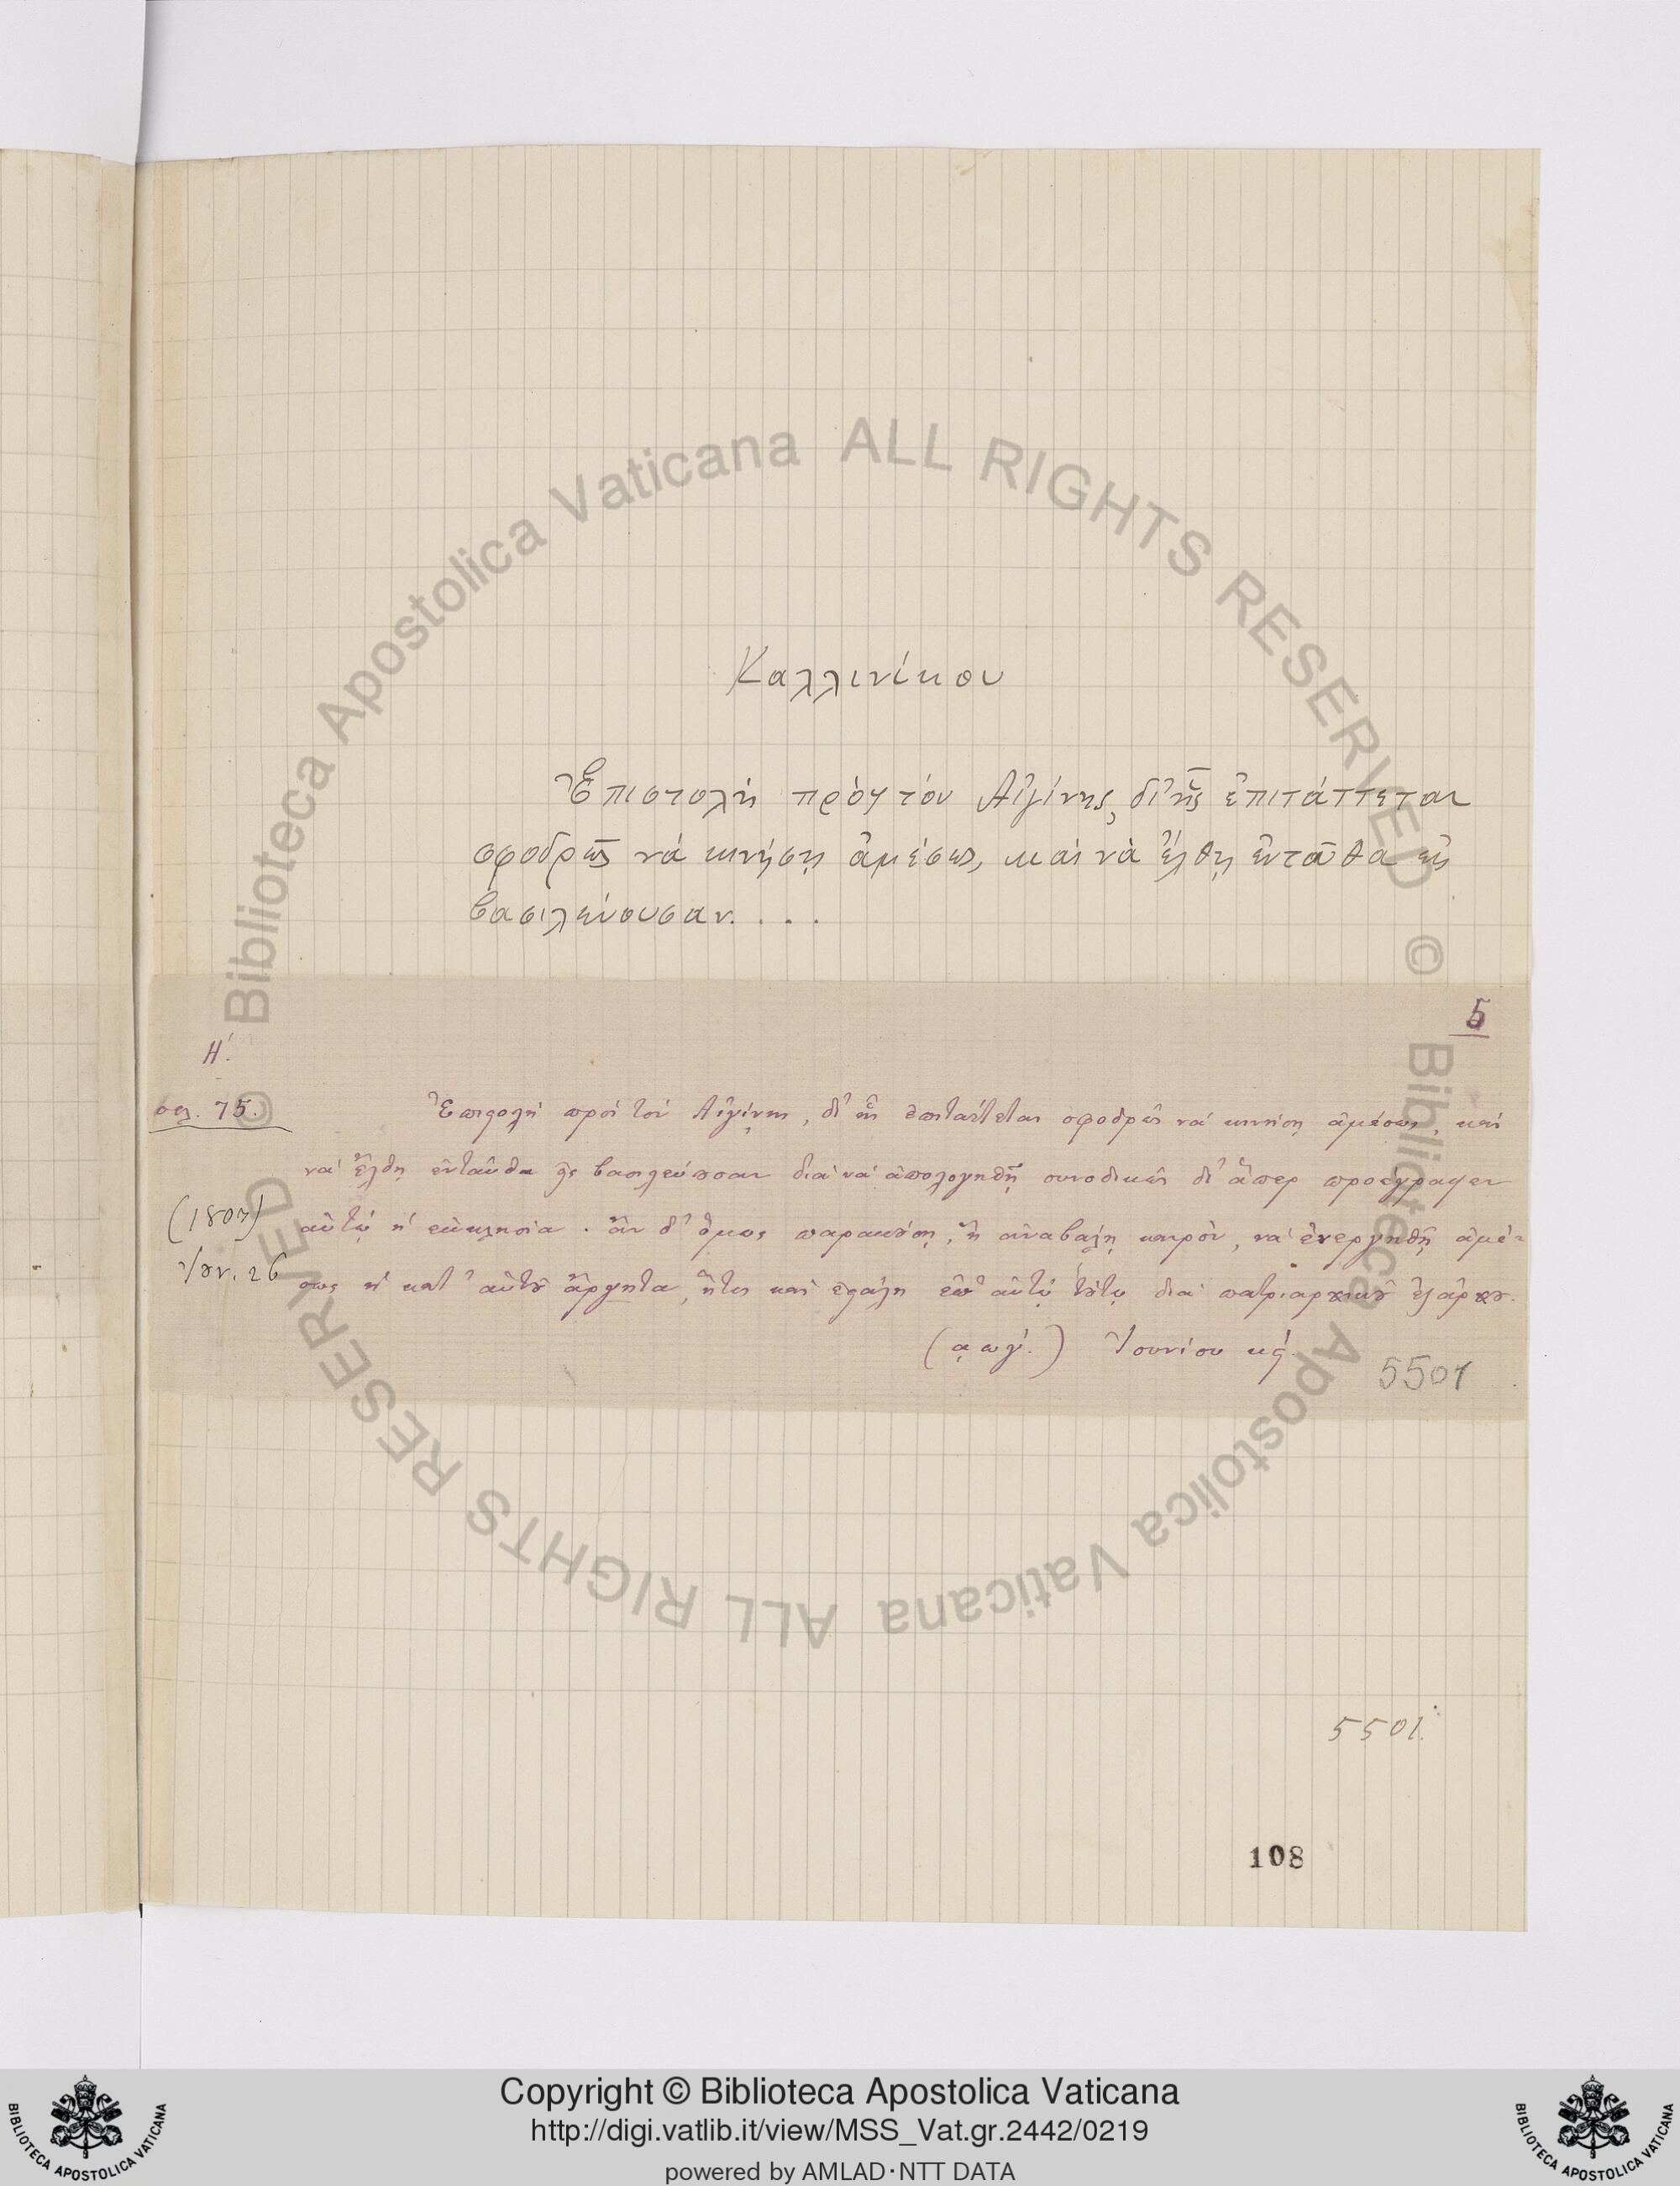 Καλλινίκου
Ἐπιστολὴ πρὸς τὸν Αἰγίνης, δι' ἧς ἐπιτάττεται
σφοδρῶς νὰ κινήσῃ ἀμέσως, καὶ νὰ ἔλθῃ ἐνταῦθα εἰς
βασιλεύουσαν. . . .
5
Η΄.
σελ. 75.
Ἐπιστολὴ πρὸς τὸν Αἰγίνης, δι' ἧς ἐπιτάττεται σφοδρῶς νὰ κινήσῃ ἀμέσως, καὶ
νὰ ἔλθῃ ἐνταῦθα εἰς βασιλεύουσαν διὰ νὰ ἀπολογηθῇ συνοδικῶς δι' ἅπερ προέγραψεν
(1807) αὐτῷ ἡ ἐκκλησία. ἂν δ' ὅμως παρακούσῃ, ἢ ἀναβάλῃ καιρὸν, νὰ ἐνεργηθῇ ἀμέ-
Ἰουν. 26 σως ἡ κατ' αὐτοῦ ἀργητα, ἥτις καὶ ἐστάλη ἐπ' αὐτῷ τούτῳ διὰ πατριαρχικοῦ ἐξάρχου.
(αωγ΄.) Ἰουνίου κϛ΄.
5501
5501.
108
© Biblioteca Apostolica Vaticana ALL RIGHTS RESERVED © Biblioteca Apostolica Vaticana ALL RIGHTS RESERVED
BIBLIOTECA APOSTOLICA VATICANA
Copyright © Biblioteca Apostolica Vaticana
http://digi.vatlib.it/view/MSS_Vat.gr.2442/0219
powered by AMLAD·NTT DATA
BIBLIOTECA APOSTOLICA VATICANA